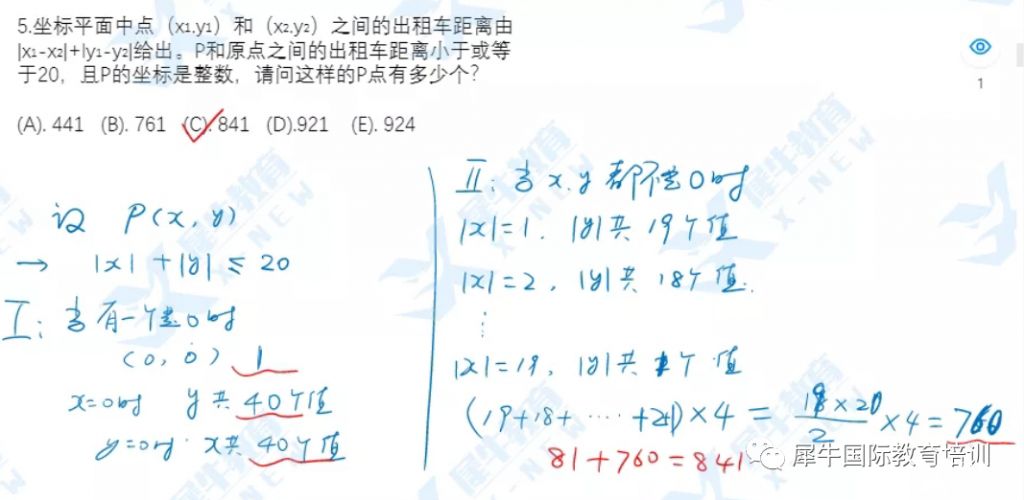 5.坐标平面中点（x₁,y₁）和（x₂,y₂）之间的出租车距离由
|x₁-x₂|+|y₁-y₂|给出。P和原点之间的出租车距离小于或等
于20，且P的坐标是整数，请问这样的P点有多少个？
(A). 441 (B). 761 (C). 841 (D).921 (E). 924
1
设 P(x, y)
→ |x| + |y| ≤ 20
Ⅰ: 当有一个是0时
(0, 0) 1
x=0时 y共40个值
y=0时 x共40个值
Ⅱ: 当x.y都不是0时
|x|=1. |y|共19个值
|x|=2, |y|共18个值.
⋮
|x|=19, |y|共1个值
(19+18+ ⋯ +2+1)×4 = 19×20/2 ×4=760
81+760=841
犀牛国际教育培训
犀牛教育
X-NEW